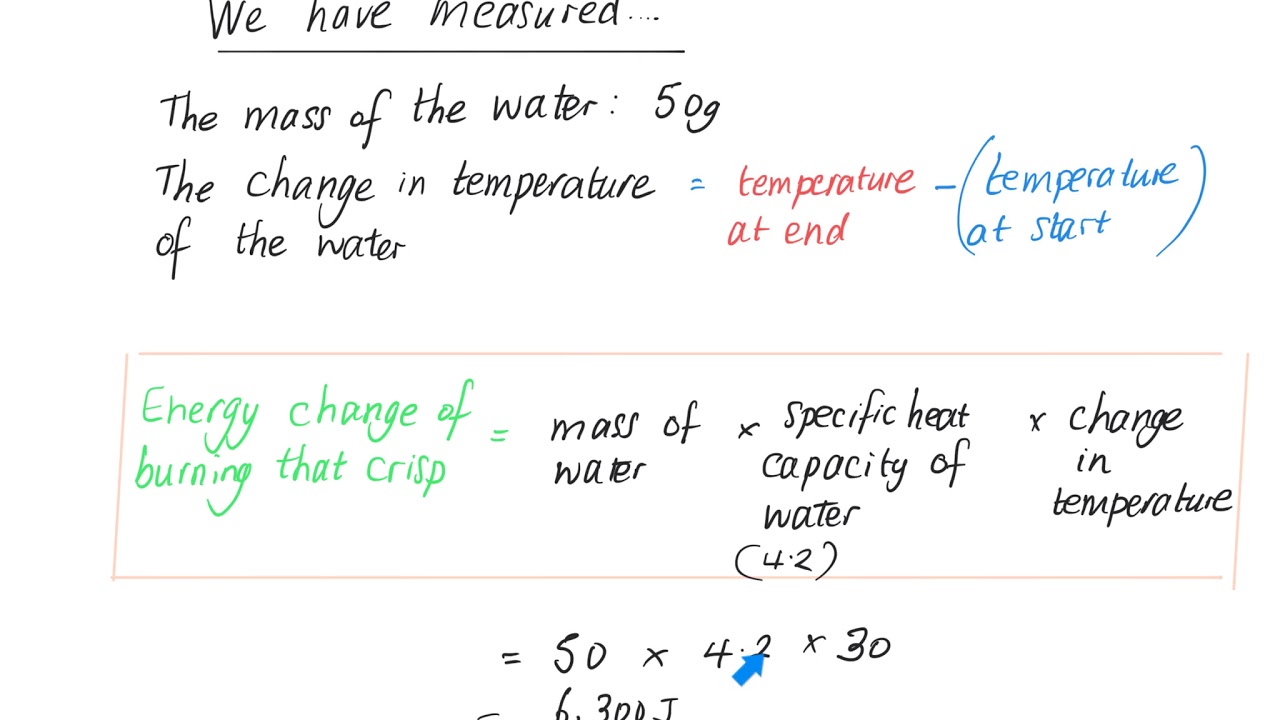 We have measured....
The mass of the water: 50g
The change in temperature = temperature - (temperature
of the water at end at start)
Energy change of = mass of × specific heat × change
burning that crisp water capacity of in
water temperature
(4.2)
= 50 × 4.2 × 30
= 6,300J